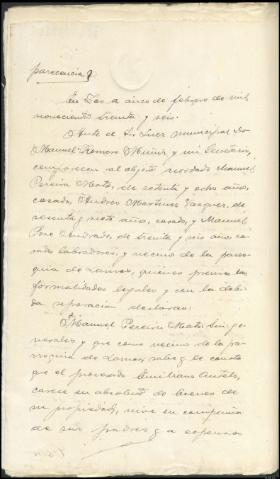 parecencia
En Zas a cinco de febrero de mil
novecientos treinta y seis.
Ante el Sr. Juez municipal Don
Manuel Ramon Muñiz y mi Secretario,
comparecen al objeto acordado Manuel
Pereira Mato, de setenta y ocho años,
casado, Andres Martinez Vazquez, de
sesenta y siete años, casado, y Manuel
Pose Andrade, de treinta y seis años, ca-
sado, labradores, y vecinos de la parro-
quia de Lamas, quienes previas las
formalidades legales y con la debi-
da separacion declaran:
Manuel Pereira Mato: Sin ge-
nerales y que como vecino de la pa-
rroquia de Lamas sabe y le consta
que el procesado Emiliano Antelo,
carece en absoluto de bienes de
su propiedad, vive en compañia
de sus padres y a expensas